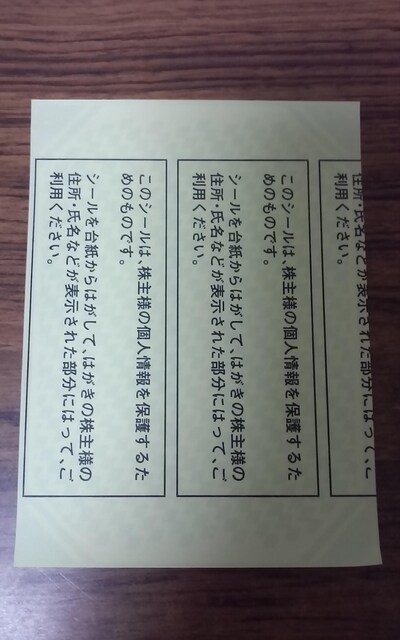 住所・氏名などが表示された部分にはって、ご
利用ください。
このシールは、株主様の個人情報を保護するた
めのものです。
シールを台紙からはがして、はがきの株主様の
住所・氏名などが表示された部分にはって、ご
利用ください。
このシールは、株主様の個人情報を保護するた
めのものです。
シールを台紙からはがして、はがきの株主様の
住所・氏名などが表示された部分にはって、ご
利用ください。